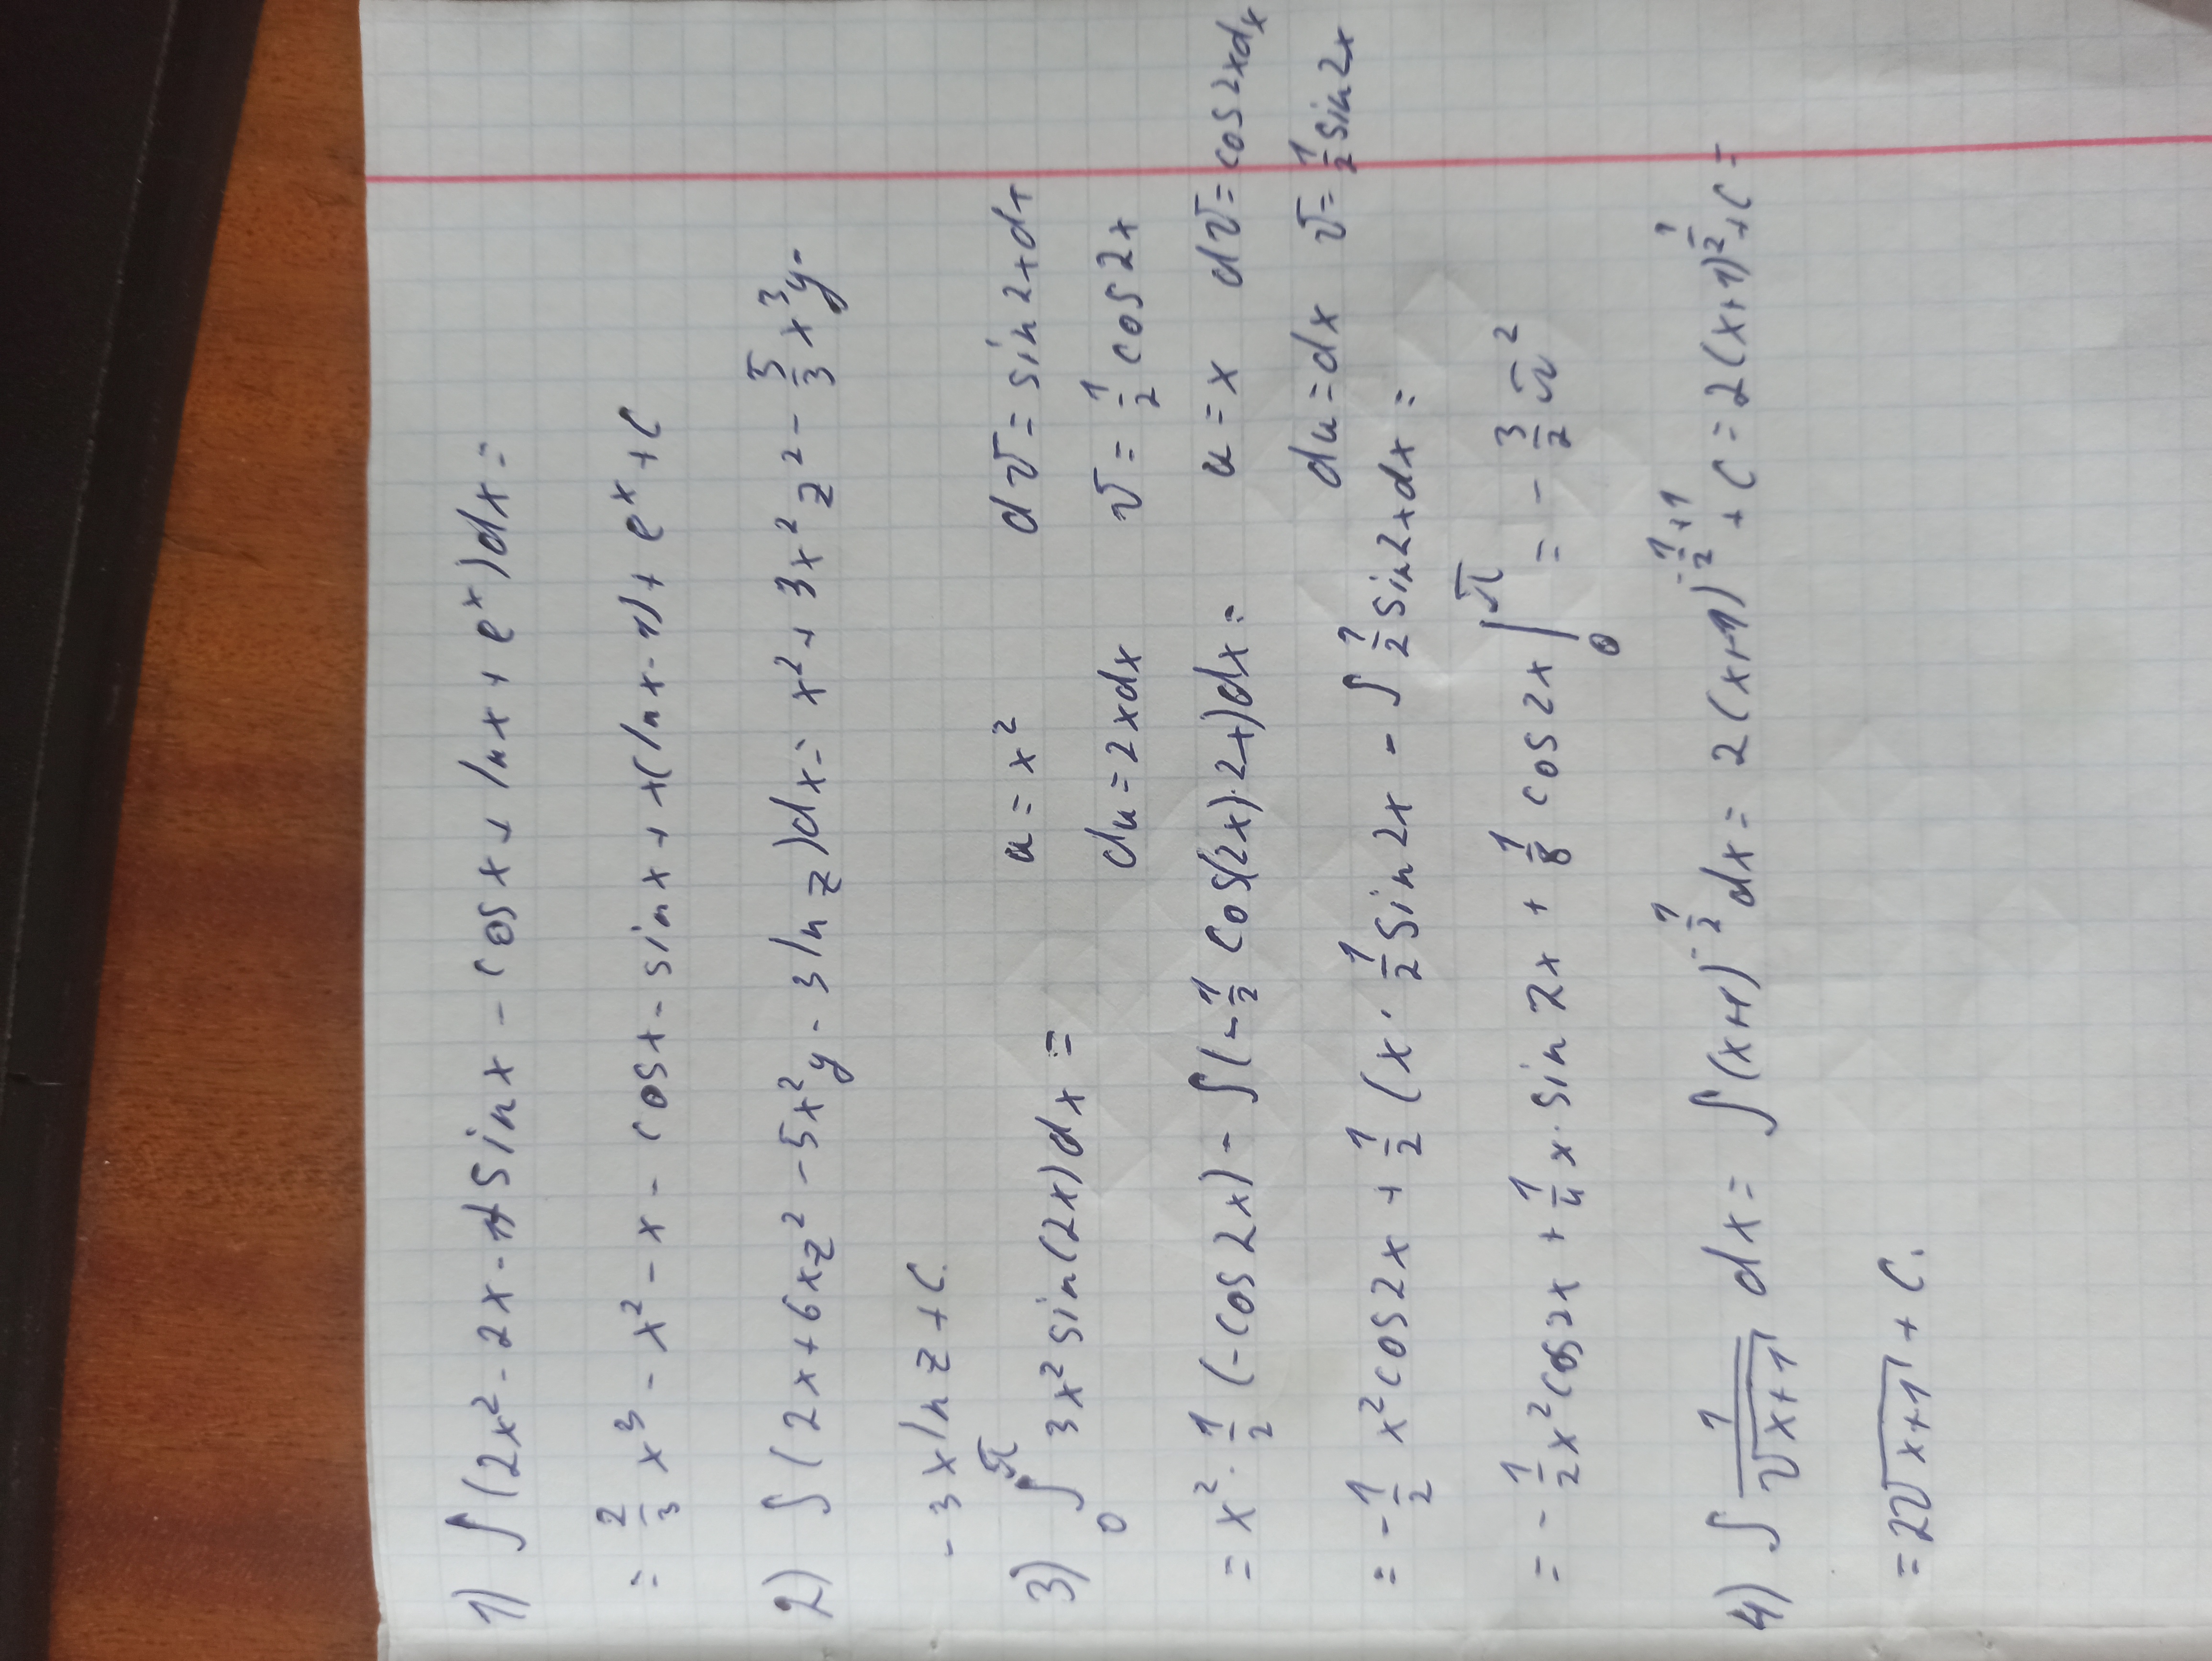 1) ∫(2x² - 2x - 1 + sin x - cos x + ln x + eˣ)dx =
= 2/3 x³ - x² - x - cos x - sin x + x(ln x - 1) + eˣ + C
2) ∫(2x + 6xz² - 5x²y - 3 ln z)dx = x² + 3x²z² - 5/3 x³y -
- 3x ln z + C.
3) ∫₀^π 3x² sin(2x)dx = u = x² dv = sin 2x dx
du = 2xdx v = 1/2 cos 2x
= x² · 1/2 (-cos 2x) - ∫(-1/2 cos(2x)·2x)dx = u = x dv = cos 2x dx
du = dx v = 1/2 sin 2x
= -1/2 x² cos 2x + 1/2 (x · 1/2 sin 2x - ∫ 1/2 sin 2x dx =
= -1/2 x² cos 2x + 1/4 x · sin 2x + 1/8 cos 2x |₀^π = -3/2 π²
4) ∫ 1/√(x+1) dx = ∫(x+1)^(-1/2) dx = 2(x+1)^(-1/2+1) + C = 2(x+1)^(1/2) + C =
= 2√(x+1) + C.